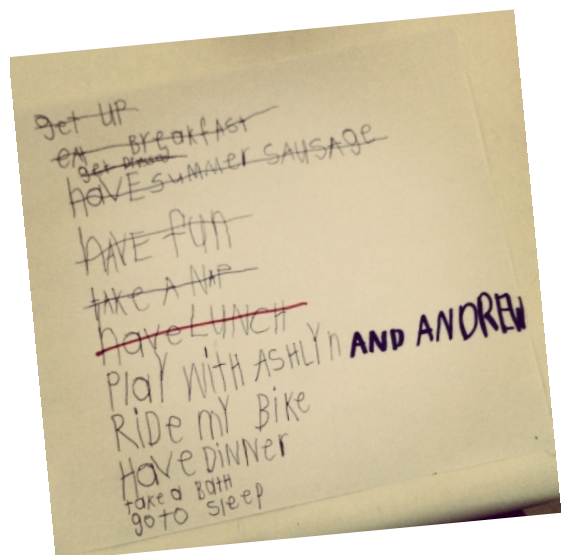 get UP
eat BreakfAST
get Dressed
haVE summer SAUSAge
hAVE fun
tAke A NAP
have LUNCH
PlaY WitH ASHLYn AND ANDREW
RiDe mY Bike
HAVe DiNNer
take a Bath
go to sleep